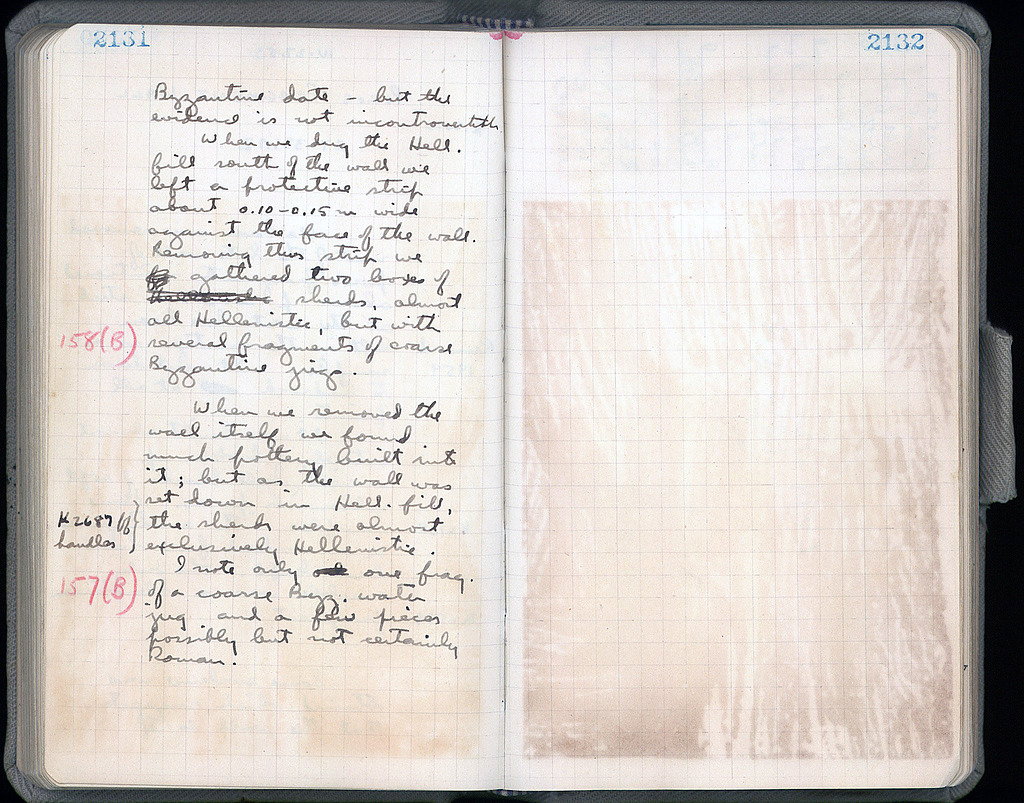 2131
2132
Byzantine date – but the
evidence is not incontrovertible.
When we dug the Hell.
fill south of the wall we
left a protective strip
about 0.10-0.15 m wide
against the face of the wall.
Removing this strip we
gathered two boxes of
sherds, almost
all Hellenistic, but with
158(B)
several fragments of coarse
Byzantine jugs.
When we removed the
wall itself we found
much pottery built into
it; but as the wall was
set down in Hell. fill,
K 2687 ff
the sherds were almost
handles
exclusively Hellenistic.
I note only one frag.
157(B)
of a coarse Byz. water
jug and a few pieces
possibly but not certainly
Roman.